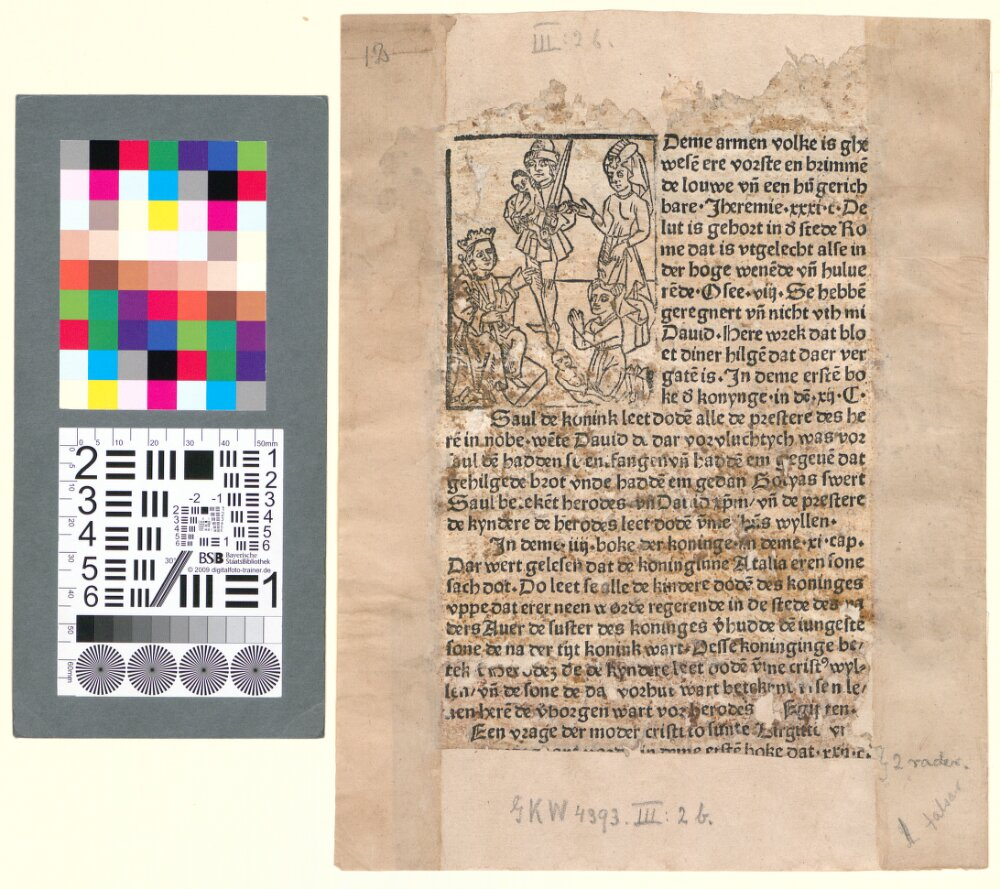 12
III: 2 b.
Deme armen volke is ghe
wesē ere vorste en brūmmē
de louwe vn̄ een hū gerich
bare · Jheremie · xxxi · c · De
lut is gehort in d̄ stede Ro
me dat is vtgelecht alse in
der hoge wenēde vn̄ hulue
rēde · Osee · viij · Se hebbē
geregnert vn̄ nicht vth mi
Dauid · Here wrek dat blo
et diner hilgē dat daer ver
gatē is · In deme erstē bo
ke d̄ konynge · in dē · xij · C ·
Saul de konink leet dodē alle de prestere des he
rē in nobe · wēte Dauid dar vorvluchtych was vor
dē hadden vn̄ haddē em gegeuē dat
gehilgede brot vnde haddē em gedan Golyas swert
Saul herodes · vn̄ xp̄m / vn̄ de prestere
de kyndere de herodes leet dodē wyllen ·
In deme · iiij · boke der koninge · in deme · xi · cap ·
Dar wert gelesen dat de koninginne Atalia eren sone
sach dot · Do leet se alle de kindere dodē des koninges
vppe dat erer neen worde regerende in de stede des
ders Auer de suster des koninges v̄hudde dē iungeste
sone de na der tijt konink wart · Desse koninginge be/
de kyndere leet dodē v̄me cristꝰ wyl/
len / vn̄ de sone de da vorhut wart le/
herē de v̄borgen wart vor herodes
Een vrage der moder cristi to sunte
in deme erstē boke dat · xxij · c ·
2 rader.
GKW 4393. III: 2 b.
1
0 5 10 20 30 40 50mm
2 1
3 2
4 3
5 4
6 5
6
-2 -1
1
BSB Bayerische
StaatsBibliothek
© 2009 digitalfoto-trainer.de